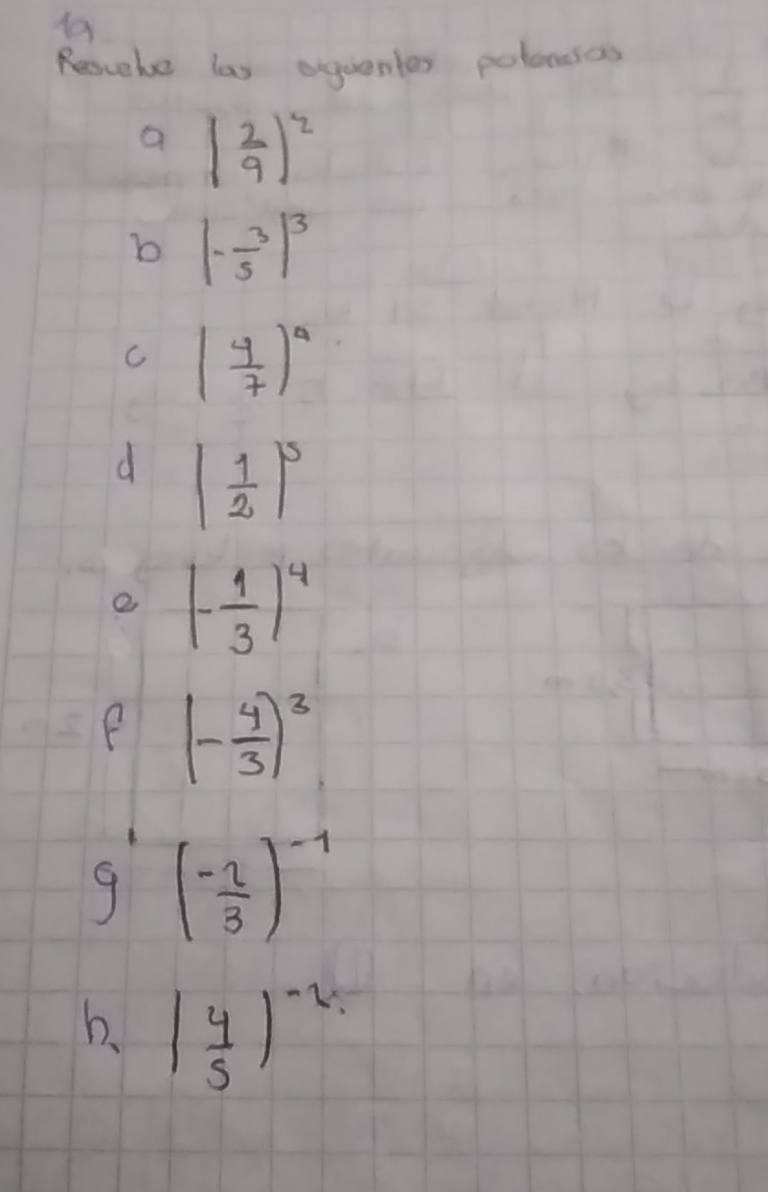 Resuelve las siguientes potencias
a (2/9)^2
b (-3/5)^3
c (4/7)
d (1/2)^5
e (-1/3)^4
f (-4/3)^3
g (-2/3)^-1
h. (4/5)^-2.